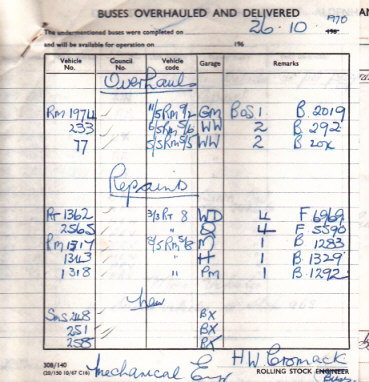 BUSES OVERHAULED AND DELIVERED
The undermentioned buses were completed on 26 · 10 1970
and will be available for operation on 196
Vehicle No. Council No. Vehicle code Garage Remarks
Overhauls
RM 1974 GM BoS 1 B. 2019
233 WW 2 B 292
77 WW 2 B 20x
Repaints
RT 1362 3/3 RT 8 WD 4 F 6969
2565 " Q 4 F 5590
RM 1517 M 1 B 1283
1343 " H 1 B. 1329
1318 " PM 1 B. 1292
New
SMS 248 BX
251 BX
258 BX
308/140
(20/150 10/67 C16)
Mechanical Eng HW Cromack
ROLLING STOCK ENGINEER
Buses